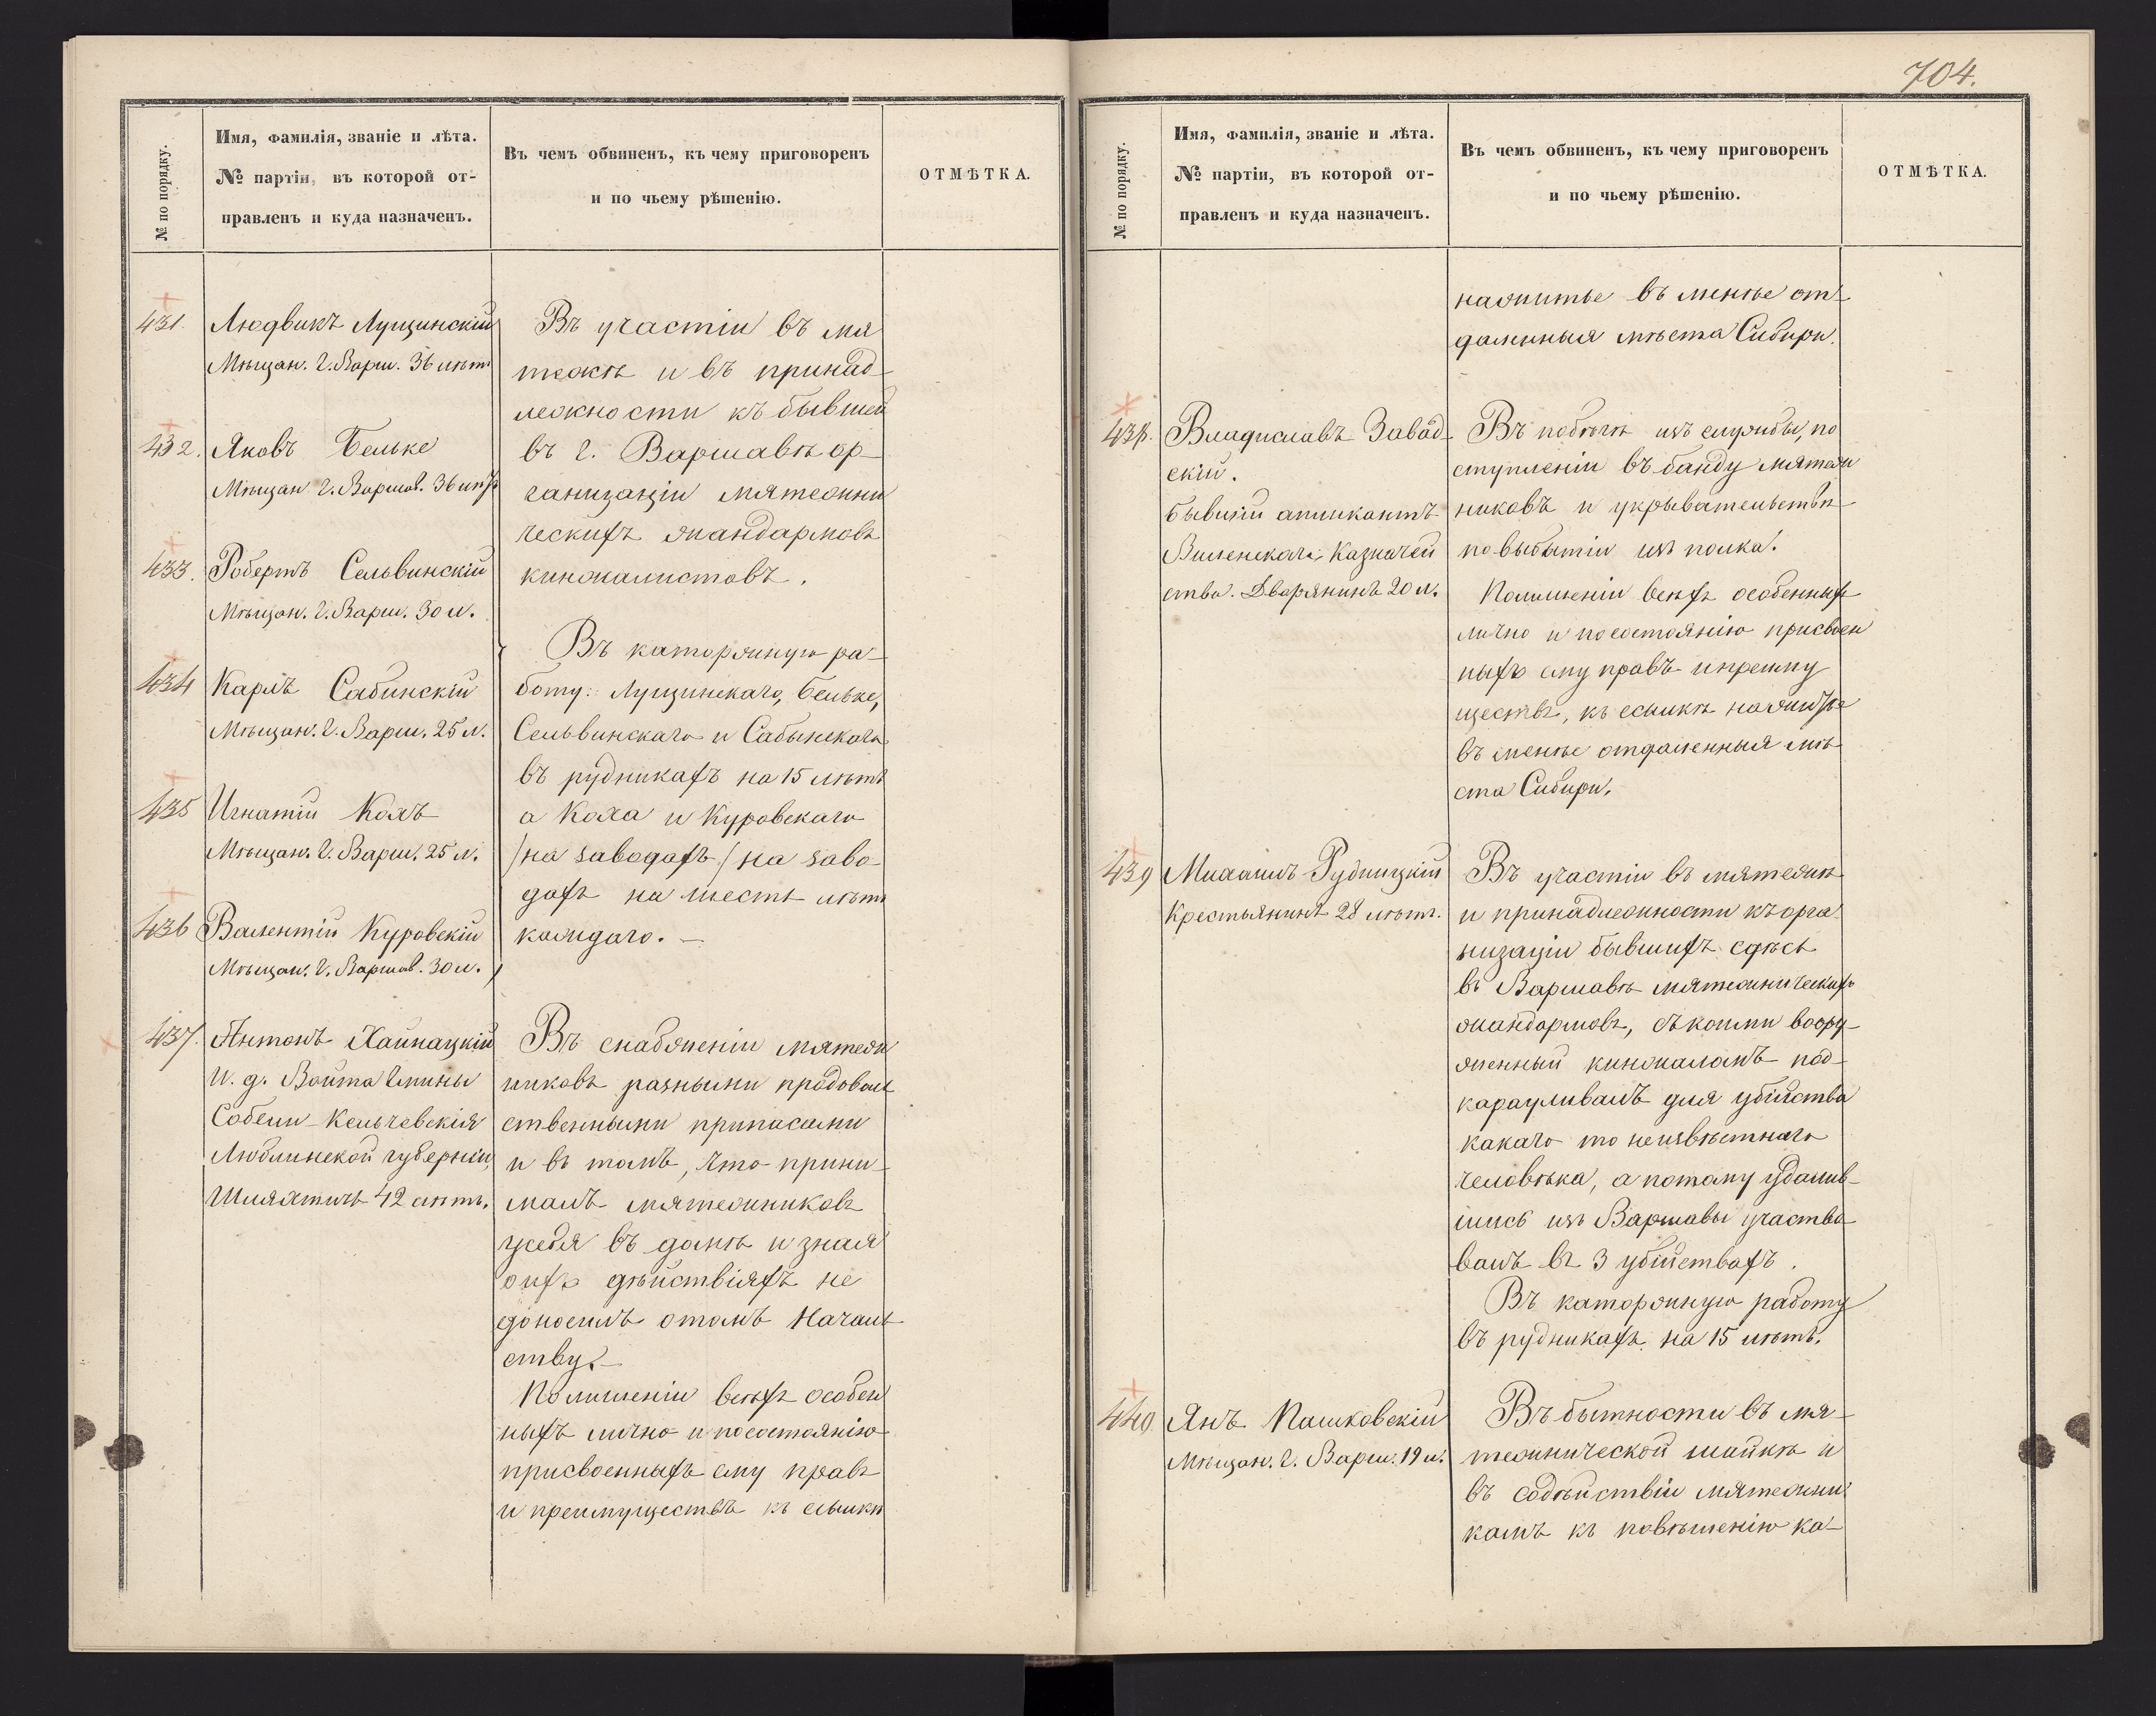 704.
№ по порядку.
Имя, фамилія, званіе и лѣта.
№ партіи, въ которой от-
правленъ и куда назначенъ.
Въ чемъ обвиненъ, къ чему приговоренъ
и по чьему рѣшенію.
ОТМѢТКА.
431.
Людвикъ Лущинскій
Мѣщан. г. Варш. 36 лѣтъ
432.
Яковъ Бельке
Мѣщан г. Варшав. 36 лѣтъ
433.
Робертъ Сельвинскій
Мѣщан. г. Варш. 30 л.
434
Карлъ Сабинскій
Мѣщан. г. Варш. 25 л.
435
Игнатій Кохъ
Мѣщан. г. Варш. 25 л.
436
Валентій Куровскій
Мѣщан. г. Варшав. 30 л.
Въ участіи въ мя
тежѣ и въ принад-
лежности къ бывшей
въ г. Варшавѣ ор-
ганизаціи мятежни
ческихъ жандармовъ
кинжалистовъ.
Въ каторжную ра-
боту: Лущинскаго, Бельке,
Сельвинскаго и Сабынскаго
въ рудникахъ на 15 лѣтъ
а Коха и Куровскаго
/на заводахъ/ на заво-
дахъ на шесть лѣтъ
каждаго. —
437.
Антонъ Хайнацкій
И. д. Войта Гмины
Собели-Кельчевскія
Люблинской губерніи,
Шляхтичъ 42 лѣтъ.
Въ снабженіи мятеж
никовъ разными продоволь
ственными припасами
и въ томъ, что прини-
малъ мятежниковъ
у себя въ домѣ и зная
о ихъ дѣйствіяхъ не
доносилъ о томъ Началь
ству. —
По лишеніи всѣхъ особен
ныхъ лично и по состоянію
присвоенныхъ ему правъ
и преимуществъ къ ссылкѣ
№ по порядку.
Имя, фамилія, званіе и лѣта.
№ партіи, въ которой от-
правленъ и куда назначенъ.
Въ чемъ обвиненъ, къ чему приговоренъ
и по чьему рѣшенію.
ОТМѢТКА.
на житье въ менѣе от-
даленныя мѣста Сибири.
438.
Владиславъ Завад-
скій.
бывшій апликантъ
Виленскаго Казначей
ства. Дворянинъ 20 л.
Въ побѣгѣ изъ службы, по
ступленіи въ банду мятеж
никовъ и укрывательствѣ
по выбытіи изъ полка.
По лишеніи всѣхъ особенныхъ
лично и по состоянію присвоен
ныхъ ему правъ и преиму
ществъ, къ ссылкѣ на житье
въ менѣе отдаленныя мѣ-
ста Сибири.
439
Михаилъ Рудницкій
Крестьянинъ 28 лѣтъ.
Въ участіи въ мятежѣ
и принадлежности къ орга-
низаціи бывшихъ сдѣсь
въ Варшавѣ мятежническихъ
жандармовъ, съ коими воору-
женный кинжаломъ под-
карауливалъ для убійства
какаго то неизвѣстнаго
человѣка, а потому удалив-
шись изъ Варшавы участво
валъ въ 3 убійствахъ.
Въ каторжную работу
въ рудникахъ на 15 лѣтъ.
440.
Янъ Пашковскій
Мѣщан. г. Варш. 19 л.
Въ бытности въ мя-
тежнической шайкѣ и
въ содѣйствіи мятежни
камъ къ повѣшенію ка-